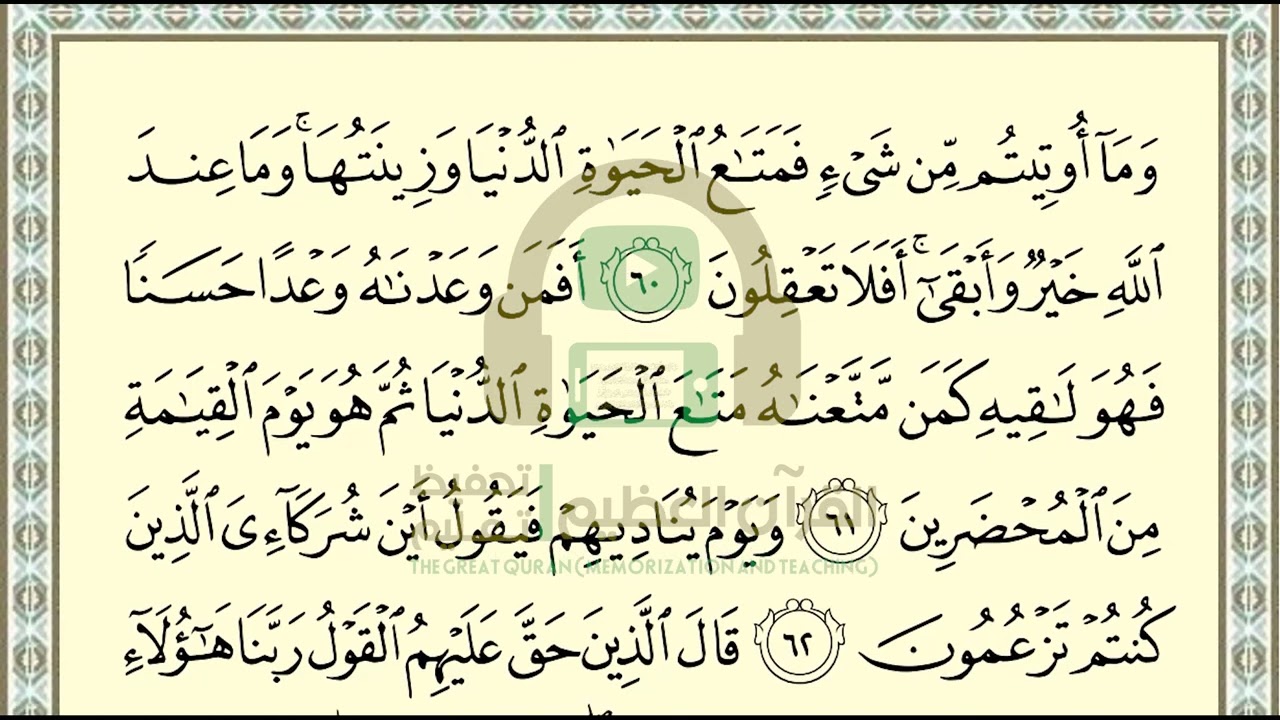 وَمَآ أُوتِيتُم مِّن شَىْءٍ فَمَتَـٰعُ ٱلْحَيَوٰةِ ٱلدُّنْيَا وَزِينَتُهَا ۚ وَمَا عِندَ
ٱللَّهِ خَيْرٌ وَأَبْقَىٰٓ ۚ أَفَلَا تَعْقِلُونَ ٦٠ أَفَمَن وَعَدْنَـٰهُ وَعْدًا حَسَنًا
فَهُوَ لَـٰقِيهِ كَمَن مَّتَّعْنَـٰهُ مَتَـٰعَ ٱلْحَيَوٰةِ ٱلدُّنْيَا ثُمَّ هُوَ يَوْمَ ٱلْقِيَـٰمَةِ
مِنَ ٱلْمُحْضَرِينَ ٦١ وَيَوْمَ يُنَادِيهِمْ فَيَقُولُ أَيْنَ شُرَكَآءِىَ ٱلَّذِينَ
كُنتُمْ تَزْعُمُونَ ٦٢ قَالَ ٱلَّذِينَ حَقَّ عَلَيْهِمُ ٱلْقَوْلُ رَبَّنَا هَـٰٓؤُلَآءِ
القرآن العظيم
تحفيظ
تعليم
THE GREAT QURAN (MEMORIZATION AND TEACHING)